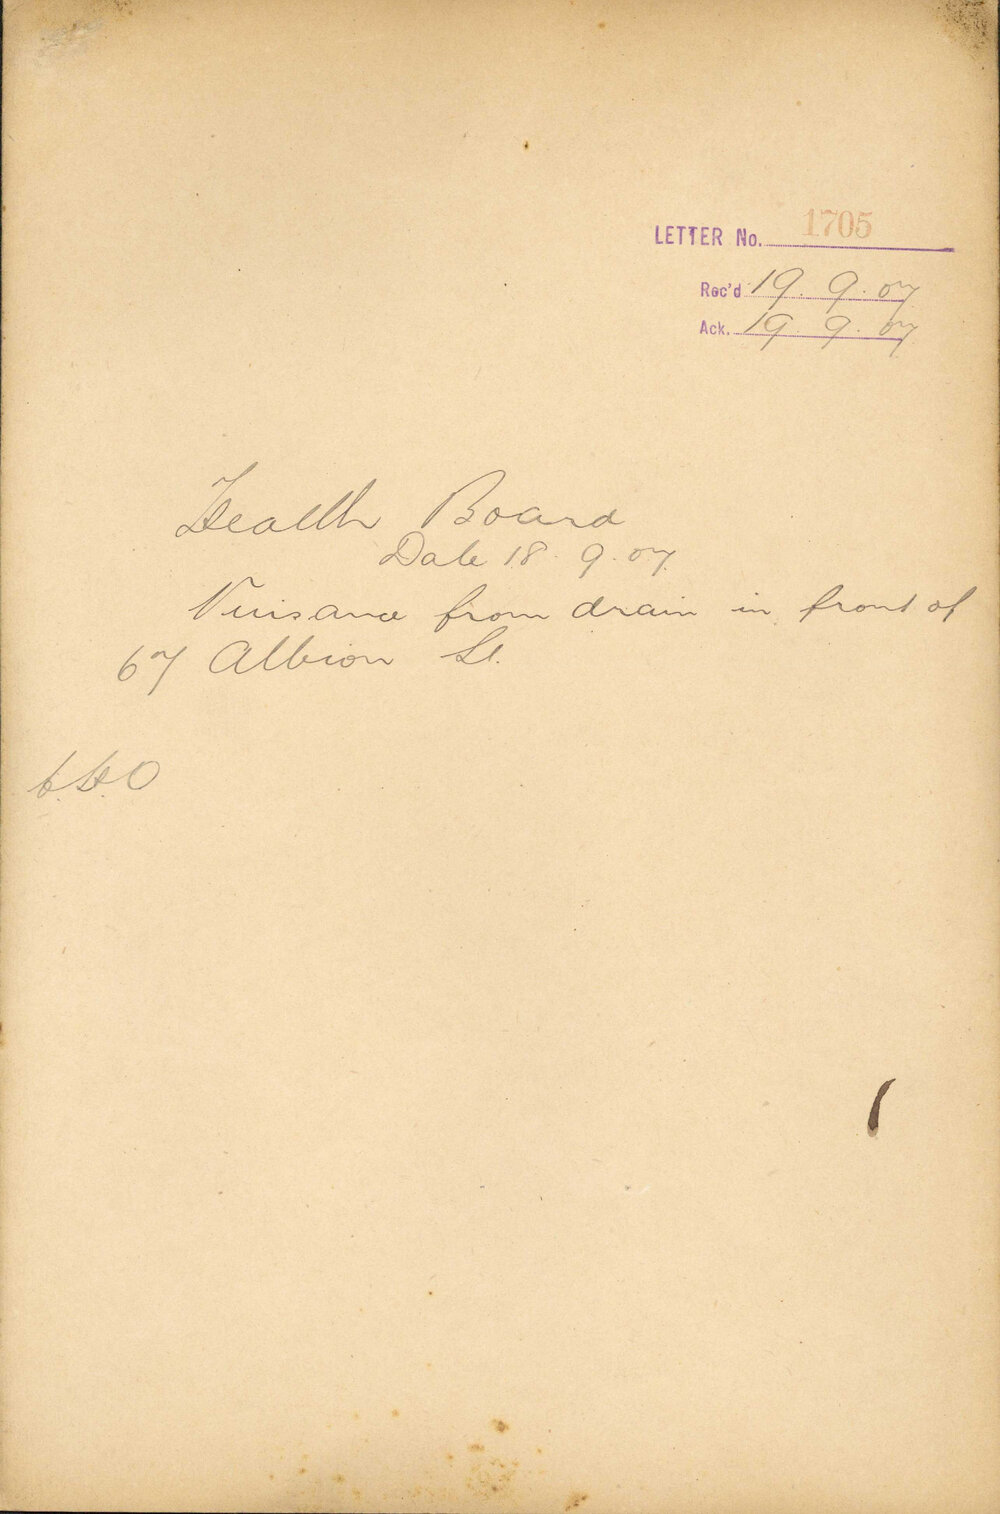 LETTER No. 1705
Rec'd 19.9.07
Ack. 19.9.07
Health Board
Date 18.9.07
Nuisance from drain in front of
67 Albion St.
C.H.O